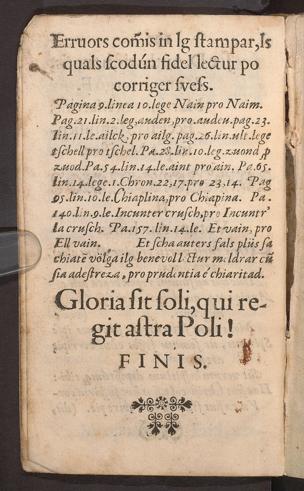 Erruors com̃is in lg stampar, ls
quals scodún fidel lectur po
corriger svess.
Pagina 9. linea 10. lege Nain pro Naim.
Pag. 21. lin. 2. leg. auden, pro. audeu. pag. 23.
lin. 11. le. ailck, pro ailg. pag. 26. lin. ult. lege
tschell pro tschel. Pa. 28. lin. 10. leg. zuond p
zuod. Pa. 54. lin. 14. le. aint pro ain. Pa. 65.
lin. 14. lege. 1. Chron. 22, 17. pro 23. 14. Pag
95. lin. 10. le. Chiaplina, pro Chiapina. Pa.
140. lin. 9. le. Incunter crusch, pro Incuntr'
la crusch. Pa. 157. lin. 14. le. Et vain, pro
Ell vain. Et scha auters fals plüs sa
chiatẽ völga ilg benevoll lectur meldrar cũ
sia adestreza, pro prudentia è chiaritad.
Gloria sit soli, qui re-
git astra Poli!
FINIS.